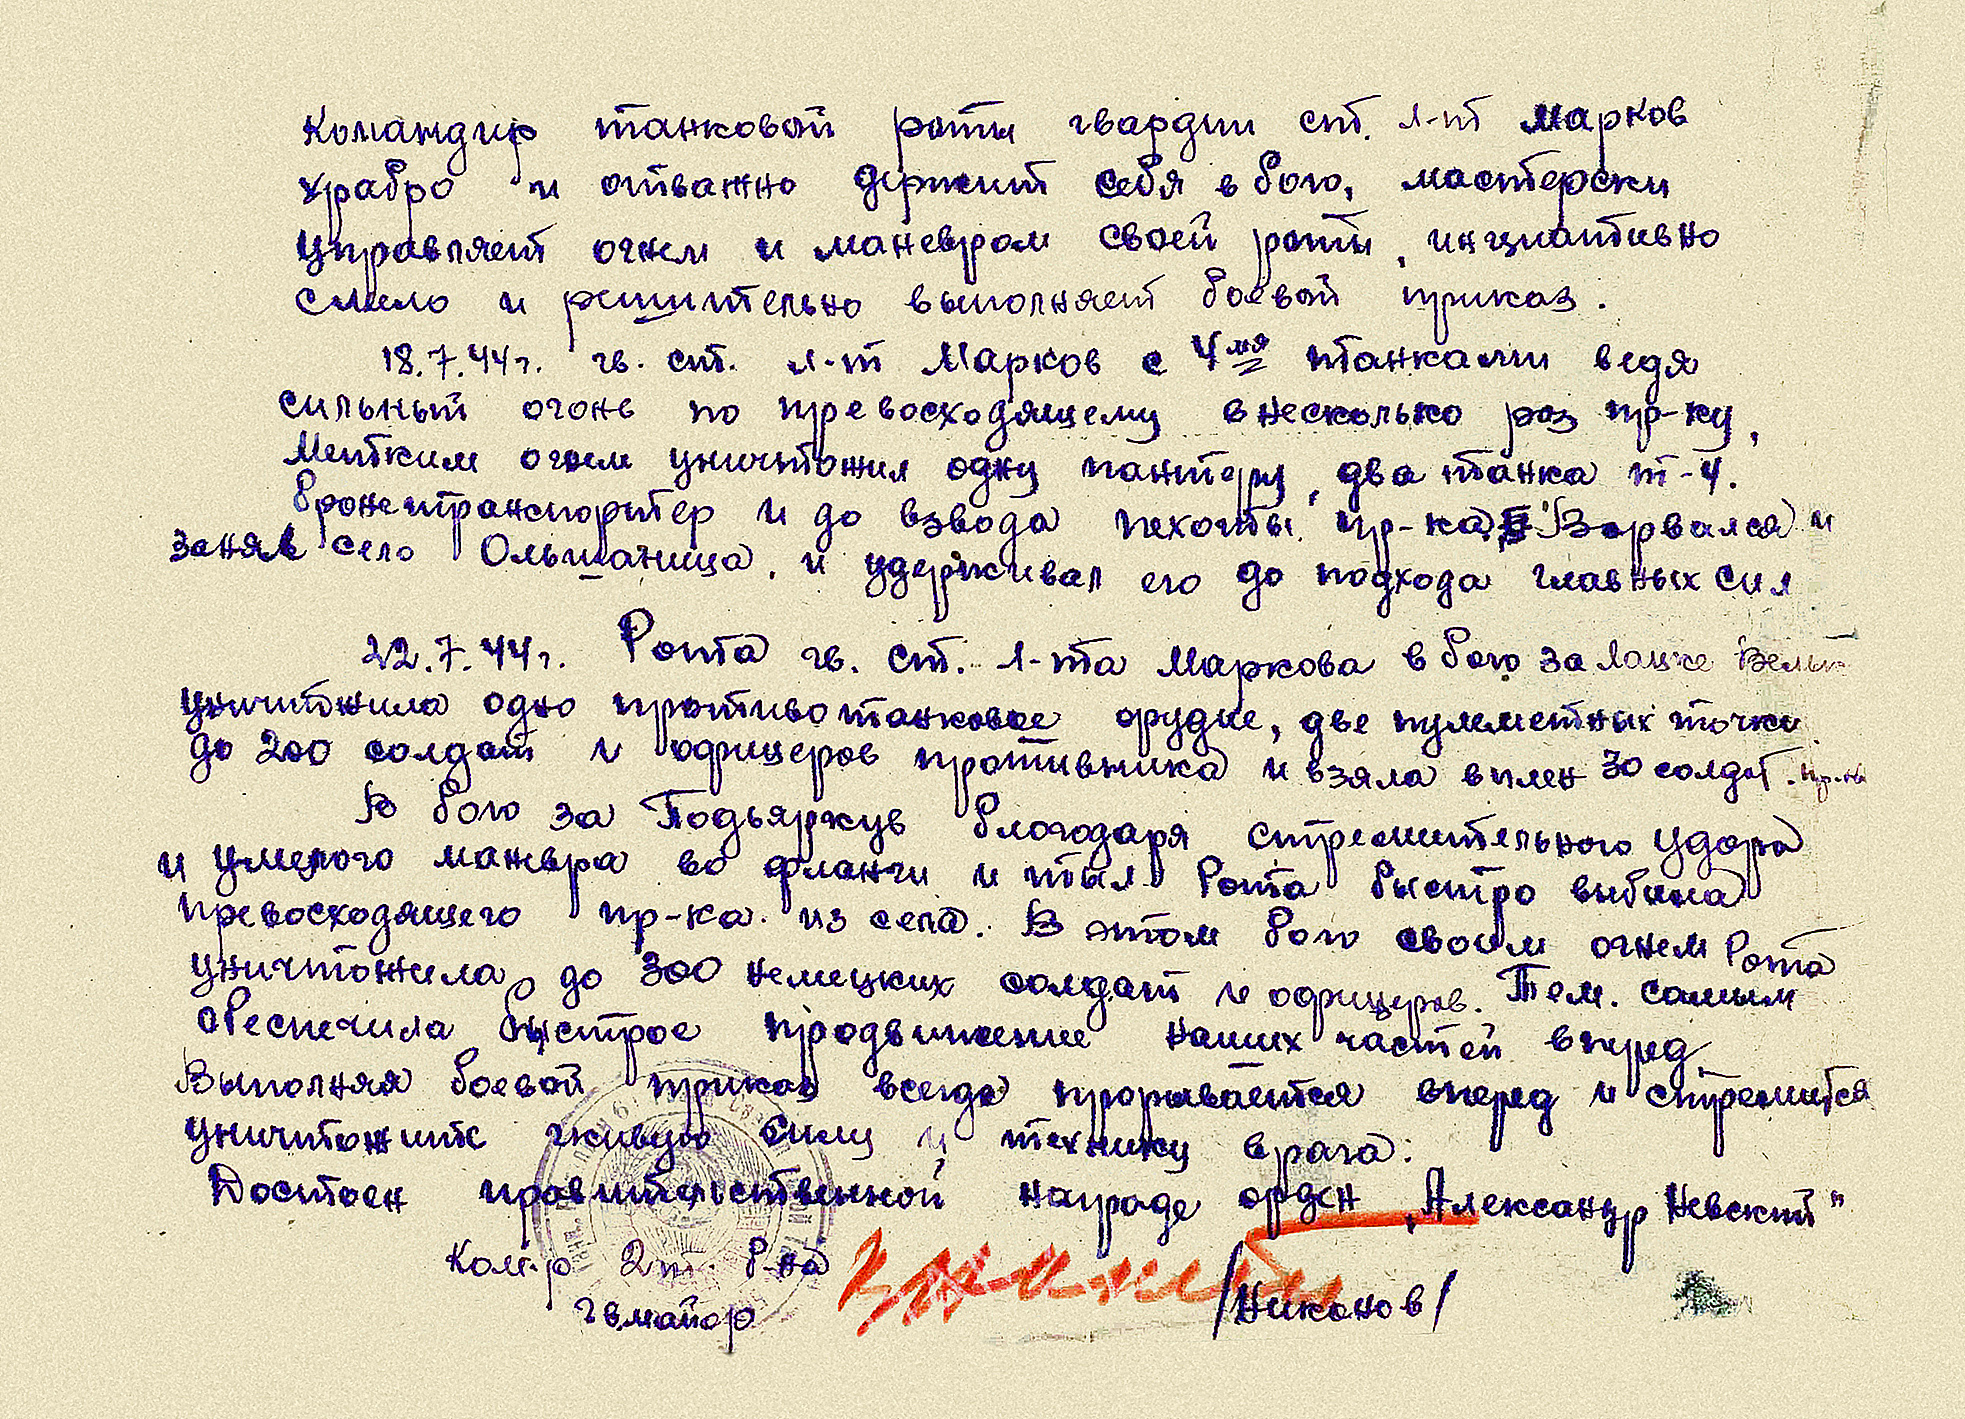 Командир танковой роты гвардии ст. л-т Марков
храбро и отважно держит себя в бою, мастерски
управляет огнем и маневром своей роты, инциативно
смело и решительно выполняет боевой приказ.
18.7.44г. гв. ст. л-т Марков с 4мя танками ведя
сильный огонь по превосходящему в несколько раз пр-ку,
Метким огнем уничтожил одну пантеру, два танка т-4.
бронетранспортер и до взвода пехоты пр-ка. Ворвался и
заняв село Ольшаница, и удерживал его до подхода главных сил
22.7.44г. Рота гв. ст. л-та Маркова в бою за Лацке
уничтожила одно противотанковое орудие, две пулеметных точки
до 200 солдат и офицеров противника и взяла в плен 30 солдат пр-ка
В бою за Подьяркув благодаря стремительного удара
и умелого манвра во фланги и тыл Рота быстро выбила
превосходящего пр-ка из села. В этом бою своим огнем Рота
уничтожила до 300 немецких солдат и офицеров. Тем самым
обеспечила быстрое продвижение наших частей вперед
Выполняя боевой приказ всегда прорывается вперед и стремится
уничтожить живую силу и технику врага.
Достоен правительственной награде орден „Александр Невский"
Ком-р 2 т. б-на
гв. майор /Никонов/